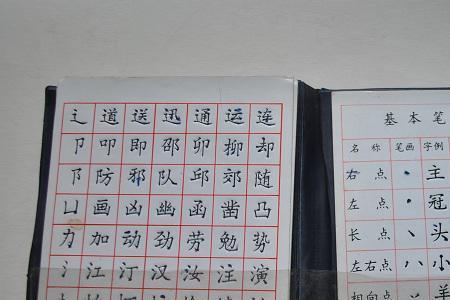 辶 道 送 迅 通 运 连
卩 叩 即 邵 卯 抑 却
阝 防 邪 队 邱 郊 随
凵 画 凶 幽 函 凿 凸
力 加 动 劲 劳 勉 势
氵 江 汀 汉 汝 注 演
基 本 笔
名 称 笔画 字例
右 点 主
左 点 冠
长 点 丶 头
左右点 八 小
相向点 丷 羊